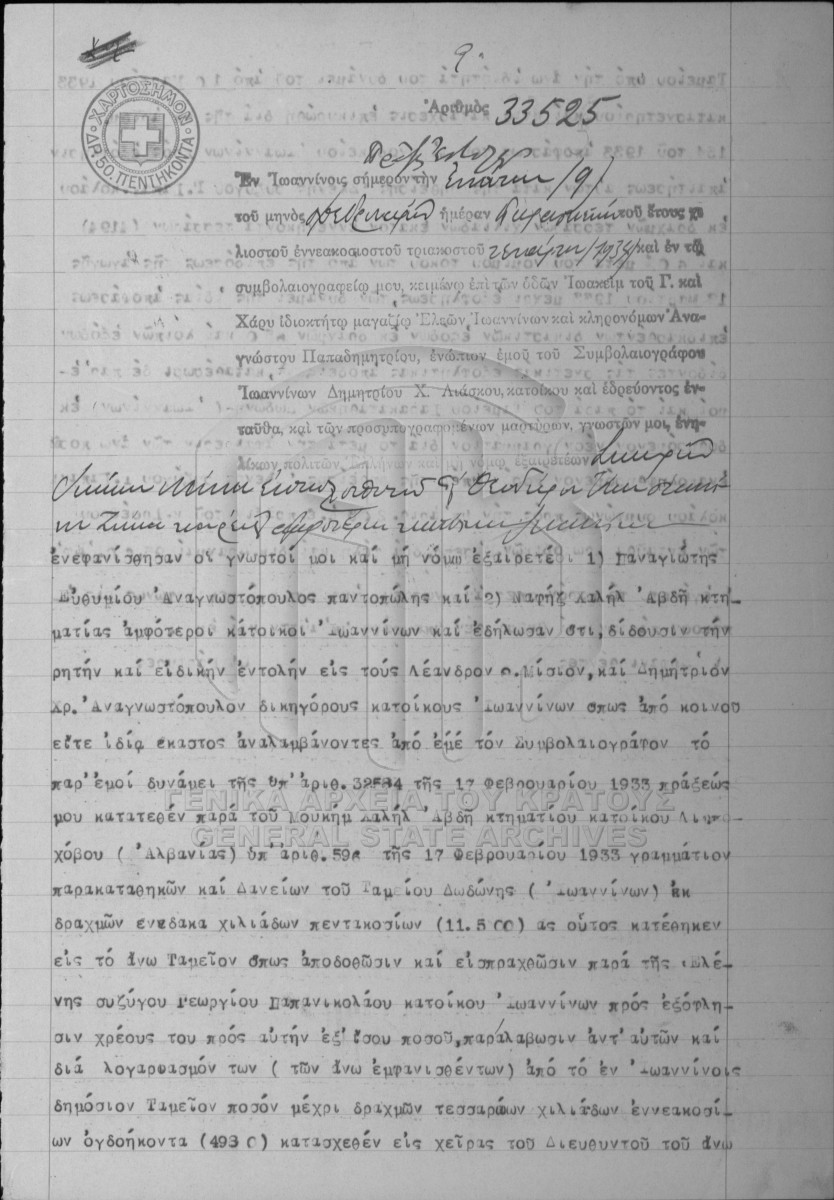 9
ΧΑΡΤΟΣΗΜΟΝ
ΔΡ. 50. ΠΕΝΤΗΚΟΝΤΑ
Ἀριθμὸς 33525
Ἐν Ἰωαννίνοις σήμερον τὴν ἐνάτην /9/
τοῦ μηνὸς Φεβρουαρίου ἡμέραν Παρασκευὴν τοῦ ἔτους χι-
λιοστοῦ ἐννεακοσιοστοῦ τριακοστοῦ τετάρτου /1934/ καὶ ἐν τῷ
συμβολαιογραφείῳ μου, κειμένῳ ἐπὶ τῶν ὁδῶν Ἰωακεὶμ τοῦ Γ. καὶ
Χάρυ ἰδιοκτήτῳ μαγαζίῳ Ἐλεῶν Ἰωαννίνων καὶ κληρονόμων Ἀνα-
γνώστου Παπαδημητρίου, ἐνώπιον ἐμοῦ τοῦ Συμβολαιογράφου
Ἰωαννίνων Δημητρίου Χ. Λιάσκου, κατοίκου καὶ ἑδρεύοντος ἐν-
ταῦθα, καὶ τῶν προσυπογραφομένων μαρτύρων, γνωστῶν μοι, ἐνη-
λίκων πολιτῶν Ἑλλήνων καὶ μὴ νόμῳ ἐξαιρετέων
ἐνεφανίσθησαν οἱ γνωστοί μοι καί μή νόμω ἐξαιρετέοι 1) Παναγιώτης
Εὐθυμίου Ἀναγνωστόπουλος παντοπώλης καί 2) Ναφήζ Χαλήλ Ἀβδῆ κτη-
ματίας ἀμφότεροι κάτοικοι Ἰωαννίνων καί ἐδήλωσαν ὅτι, δίδουσιν τήν
ρητήν καί εἰδικήν ἐντολήν εἰς τούς Λέανδρον Θ. Μίσιον, καί Δημήτριον
Χρ. Ἀναγνωστόπουλον δικηγόρους κατοίκους Ἰωαννίνων ὅπως ἀπό κοινοῦ
εἴτε ἰδίᾳ ἕκαστος ἀναλαμβάνοντες ἀπό ἐμέ τόν Συμβολαιογράφον τό
παρ' ἐμοί δυνάμει τῆς ὑπ' ἀριθ. 32584 τῆς 17 Φεβρουαρίου 1933 πράξεώς
μου κατατεθέν παρά τοῦ Μουκήμ Χαλήλ Ἀβδῆ κτηματίου κατοίκου Λιμπο-
χόβου ( Ἀλβανίας) ὑπ' ἀριθ. 59 τῆς 17 Φεβρουαρίου 1933 γραμμάτιον
παρακαταθηκῶν καί Δανείων τοῦ Ταμείου Δωδώνης ( Ἰωαννίνων) ἐκ
δραχμῶν ἕνδεκα χιλιάδων πεντακοσίων (11.500) ἅς οὗτος κατέθηκεν
εἰς τό ἄνω Ταμεῖον ὅπως ἀποδοθῶσιν καί εἰσπραχθῶσιν παρά τῆς Ἑλέ-
νης συζύγου Γεωργίου Παπανικολάου κατοίκου Ἰωαννίνων πρός ἐξόφλη-
σιν χρέους του πρός αὐτήν ἐξ' ἴσου ποσοῦ, παραλάβωσιν ἀντ' αὐτῶν καί
διά λογαριασμόν των ( τῶν ἄνω ἐμφανισθέντων) ἀπό τό ἐν Ἰωαννίνοις
δημόσιον Ταμεῖον ποσόν μέχρι δραχμῶν τεσσαράων χιλιάδων ἐννεακοσί-
ων ὀγδοήκοντα (4980) κατασχεθέν εἰς χεῖρας τοῦ Διευθυντοῦ τοῦ ἄνω
ΓΕΝΙΚΑ ΑΡΧΕΙΑ ΤΟΥ ΚΡΑΤΟΥΣ
GENERAL STATE ARCHIVES